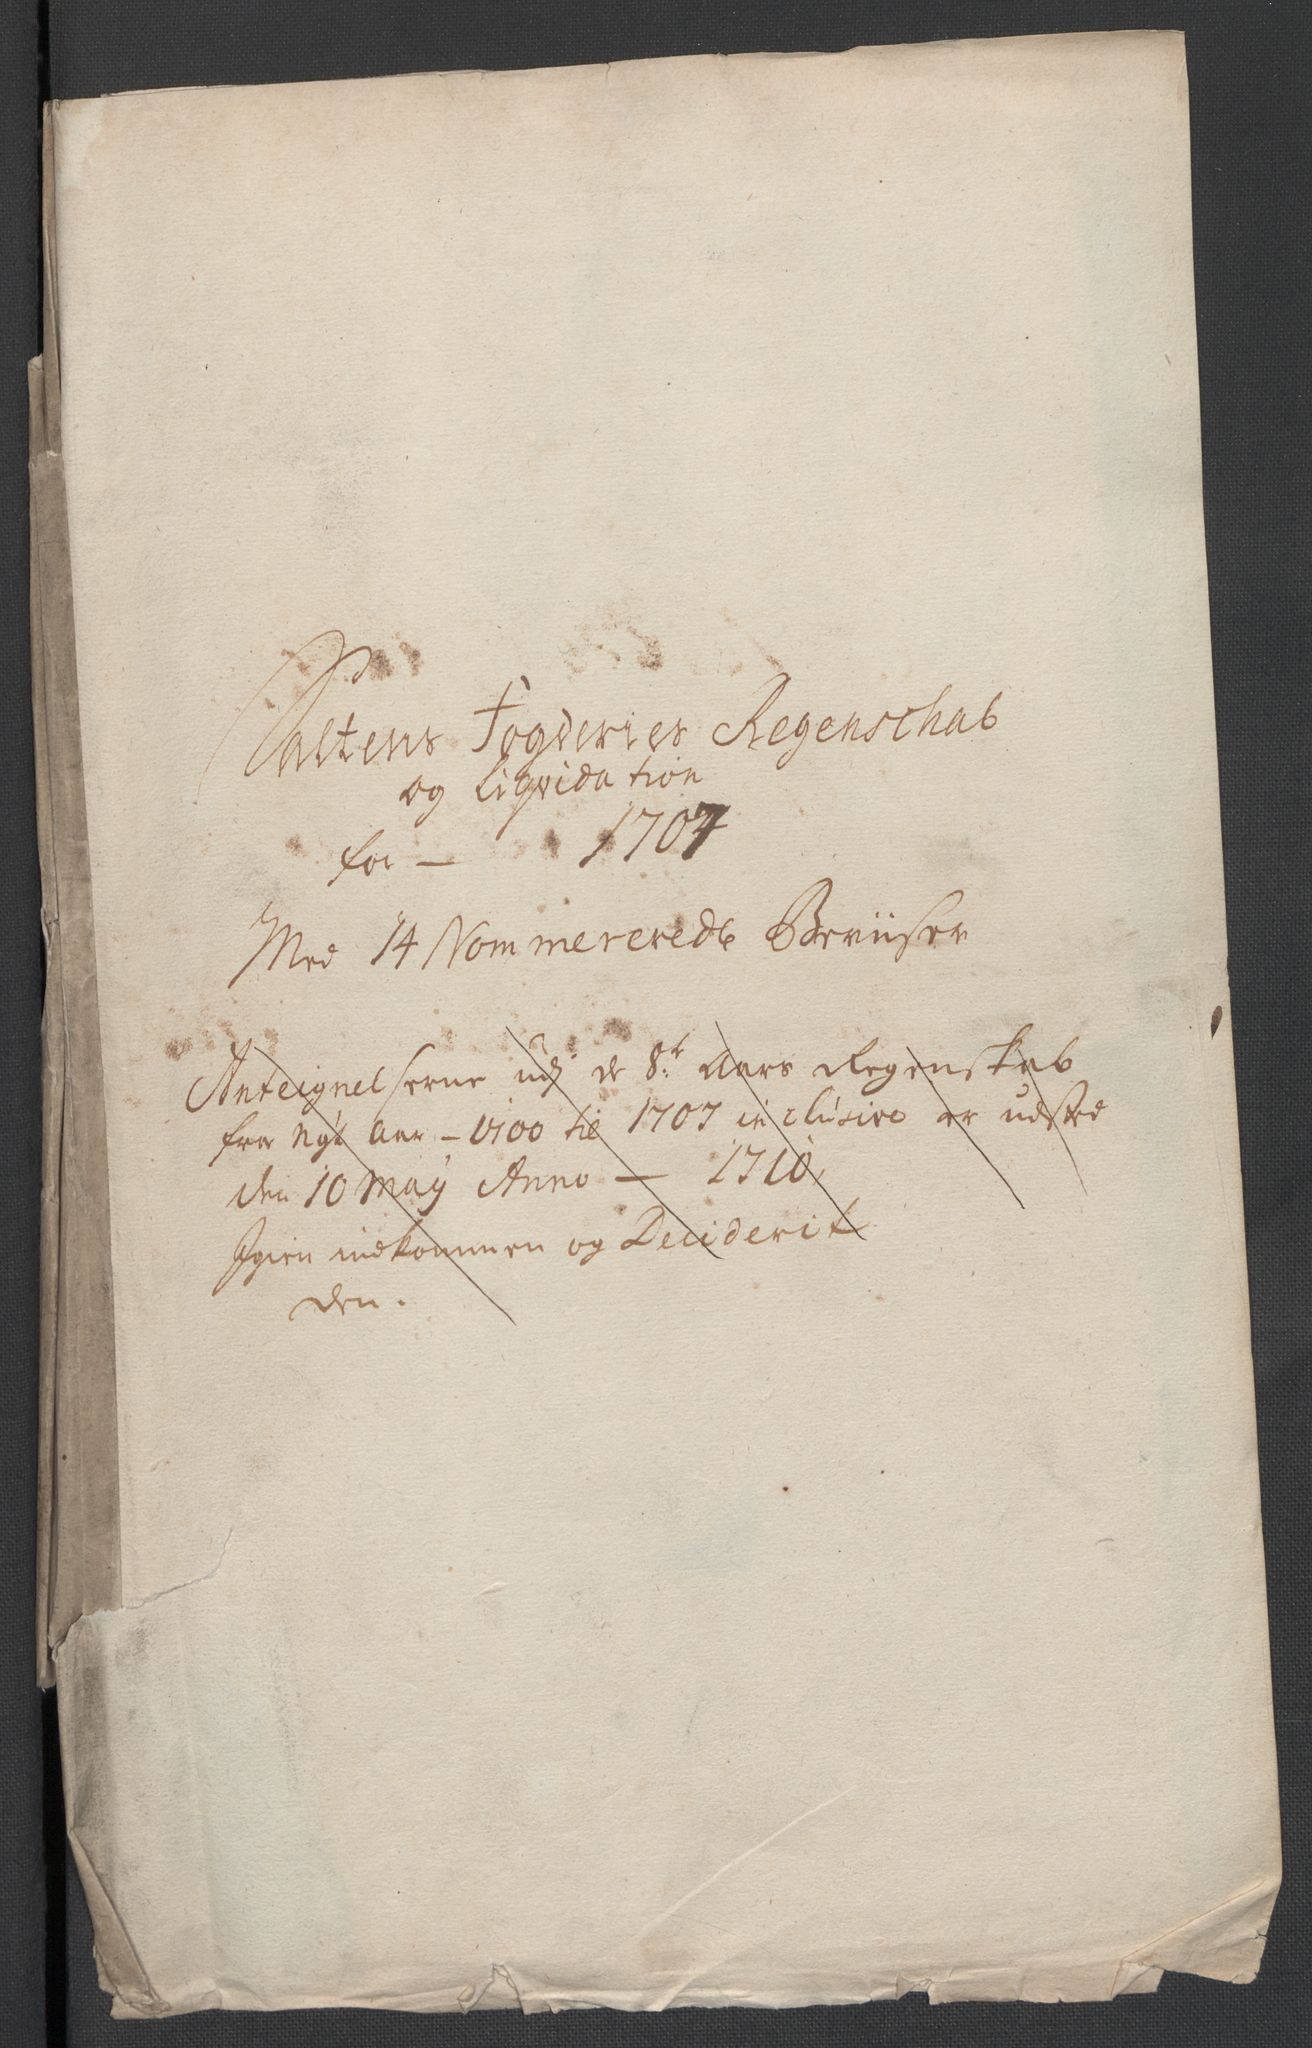 Saltens Fogderies Regenschab
og liqvidation
for — 1707
Med 14 Nommererede Beviiser
Anteignelserne udj de 8.t aars Regenskab
fra nyt aar — 1700 til 1707 inclusive er udsted
den 10 Maÿ Anno — 1710
Igien indkommen og Deciderit
den.